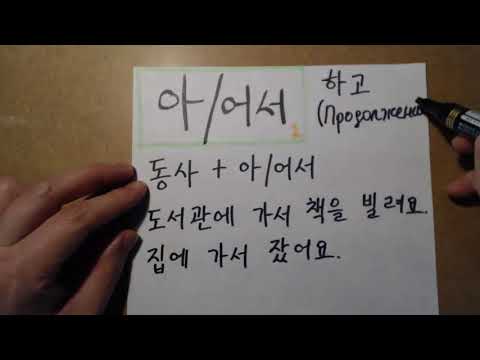 아/어서 2
하고
(Продолжение
동사 + 아/어서
도서관에 가서 책을 빌려요.
집에 가서 잤어요.